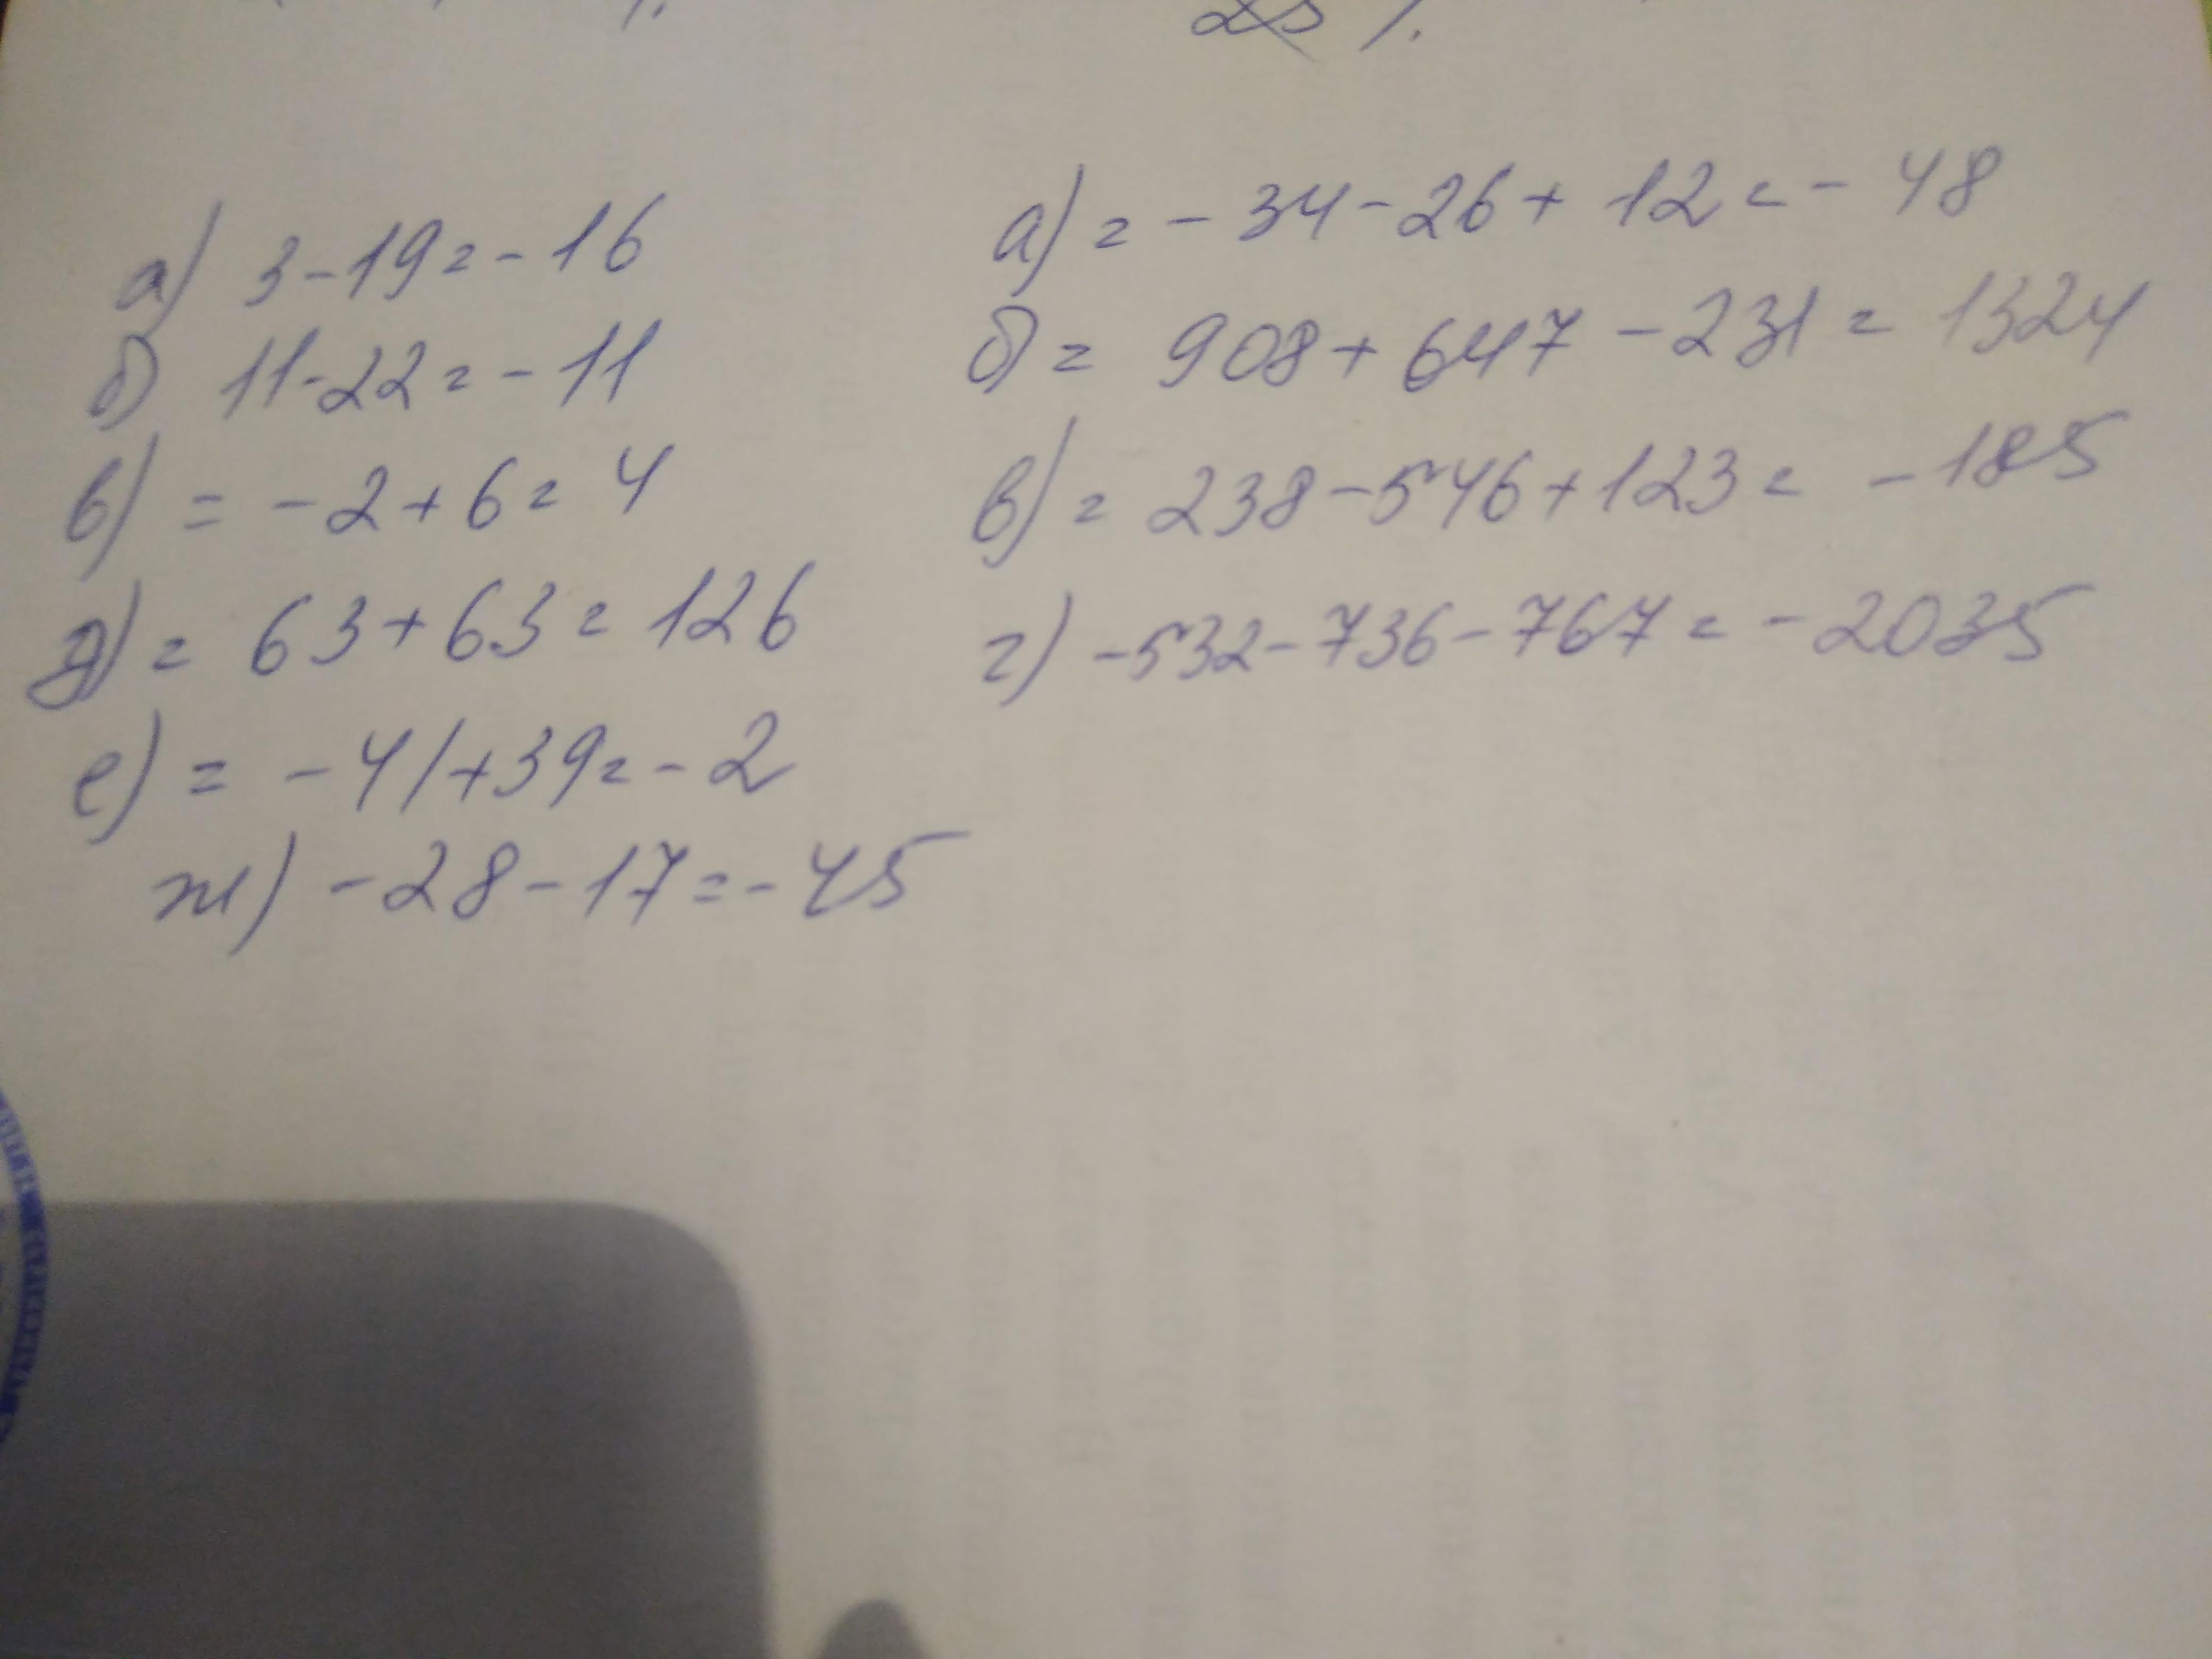 25 /.
а) 3-19=-16
б) 11-22=-11
в) = -2+6=4
д) = 63+63=126
е) = -41+39=-2
ж) -28-17=-45
а) = -34-26+12=-48
б) = 908+647-231=1324
в) = 238-546+123= -185
г) -532-736-767=-2035